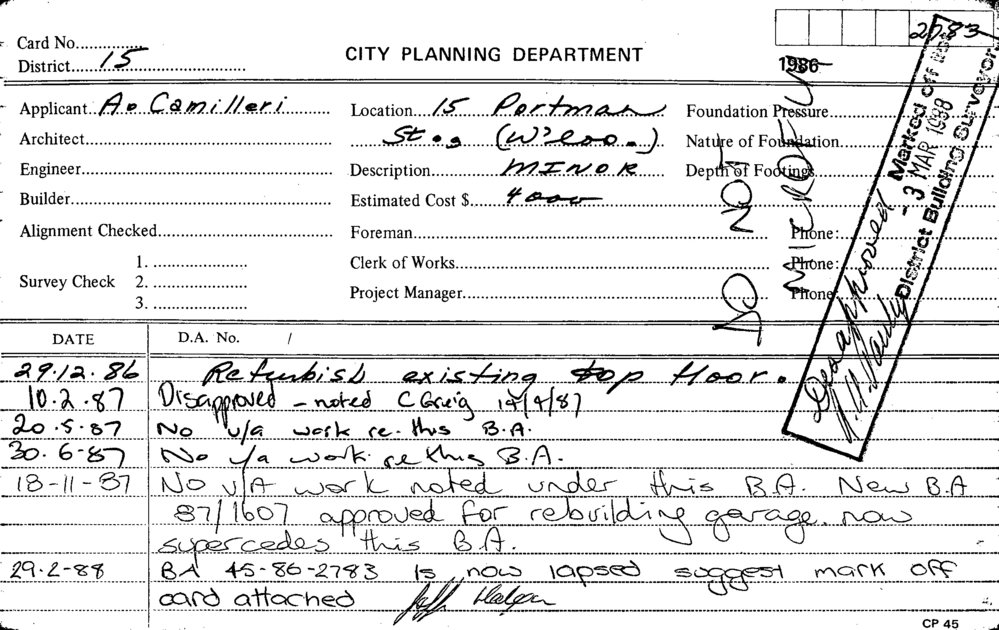 2783
Card No.
District 15
CITY PLANNING DEPARTMENT
1986
Applicant A. Camilleri
Location 15 Portman
Foundation Pressure
Architect
St., (W'loo.)
Nature of Foundation
Engineer
Description MINOR
Depth of Footings
Builder
Estimated Cost $ 4000
Alignment Checked
Foreman
Phone:
Survey Check
1.
2.
3.
Clerk of Works
Phone:
Project Manager
Phone
DO NOT
MICROFILM
Marked off
- 3 MAR 1988
District Building Surveyor.
Disapproved
DATE
D.A. No. /
29.12.86 Refurbish existing top floor.
10.2.87 Disapproved - noted C Greig 14/4/87
20.5.87 No u/a work re. this B.A.
30.6-87 No u/a work re this B.A.
18-11-87 No u/A work noted under this B.A. New B.A
87/1607 approved for rebuilding garage. now
supercedes this B.A.
29.2-88 BA 45-86-2783 Is now lapsed suggest mark off
card attached
CP 45